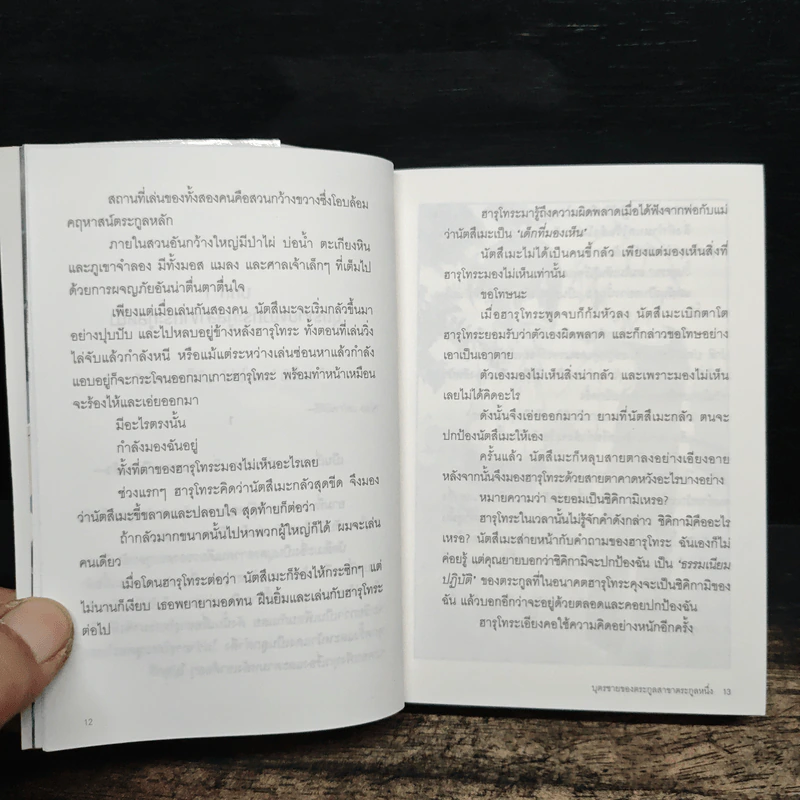 สถานที่เล่นของทั้งสองคนคือสวนกว้างขวางซึ่งโอบล้อม
คฤหาสน์ตระกูลหลัก
ภายในสวนอันกว้างใหญ่มีป่าไผ่ บ่อน้ำ ตะเกียงหิน
และภูเขาจำลอง มีทั้งมอส แมลง และศาลเจ้าเล็กๆ ที่เต็มไป
ด้วยการผจญภัยอันน่าตื่นตาตื่นใจ
เพียงแต่เมื่อเล่นกันสองคน นัตสึเมะจะเริ่มกลัวขึ้นมา
อย่างปุบปับ และไปหลบอยู่ข้างหลังฮารุโทระ ทั้งตอนที่เล่นวิ่ง
ไล่จับแล้วกำลังหนี หรือแม้แต่ระหว่างเล่นซ่อนหาแล้วกำลัง
แอบอยู่ก็จะกระโจนออกมาเกาะฮารุโทระ พร้อมทำหน้าเหมือน
จะร้องไห้และเอ่ยออกมา
มีอะไรตรงนั้น
กำลังมองฉันอยู่
ทั้งที่ตาของฮารุโทระมองไม่เห็นอะไรเลย
ช่วงแรกๆ ฮารุโทระคิดว่านัตสึเมะกลัวสุดขีด จึงมอง
ว่านัตสึเมะขี้ขลาดและปลอบใจ สุดท้ายก็ต่อว่า
ถ้ากลัวมากขนาดนั้นไปหาพวกผู้ใหญ่ก็ได้ ผมจะเล่น
คนเดียว
เมื่อโดนฮารุโทระต่อว่า นัตสึเมะก็ร้องไห้กระซิกๆ แต่
ไม่นานก็เงียบ เธอพยายามอดทน ฝืนยิ้มและเล่นกับฮารุโทระ
ต่อไป
12
ฮารุโทระมารู้ถึงความผิดพลาดเมื่อได้ฟังจากพ่อกับแม่
ว่านัตสึเมะเป็น ‘เด็กที่มองเห็น’
นัตสึเมะไม่ได้เป็นคนขี้กลัว เพียงแต่มองเห็นสิ่งที่
ฮารุโทระมองไม่เห็นเท่านั้น
ขอโทษนะ
เมื่อฮารุโทระพูดจบก็ก้มหัวลง นัตสึเมะเบิกตาโต
ฮารุโทระยอมรับว่าตัวเองผิดพลาด และก็กล่าวขอโทษอย่าง
เอาเป็นเอาตาย
ตัวเองมองไม่เห็นสิ่งน่ากลัว และเพราะมองไม่เห็น
เลยไม่ได้คิดอะไร
ดังนั้นจึงเอ่ยออกมาว่า ยามที่นัตสึเมะกลัว ตนจะ
ปกป้องนัตสึเมะให้เอง
ครั้นแล้ว นัตสึเมะก็หลุบสายตาลงอย่างเอียงอาย
หลังจากนั้นจึงมองฮารุโทระด้วยสายตาคาดหวังอะไรบางอย่าง
หมายความว่า จะยอมเป็นชิคิกามิเหรอ?
ฮารุโทระในเวลานั้นไม่รู้จักคำดังกล่าว ชิคิกามิคืออะไร
เหรอ? นัตสึเมะส่ายหน้ากับคำถามของฮารุโทระ ฉันเองก็ไม่
ค่อยรู้ แต่คุณยายบอกว่าชิคิกามิจะปกป้องฉัน เป็น ‘ธรรมเนียม
ปฏิบัติ’ ของตระกูลที่ในอนาคตฮารุโทระคุงจะเป็นชิคิกามิของ
ฉัน แล้วบอกอีกว่าจะอยู่ด้วยตลอดและคอยปกป้องฉัน
ฮารุโทระเอียงคอใช้ความคิดอย่างหนักอีกครั้ง
บุตรชายของตระกูลสาขาตระกูลหนึ่ง 13